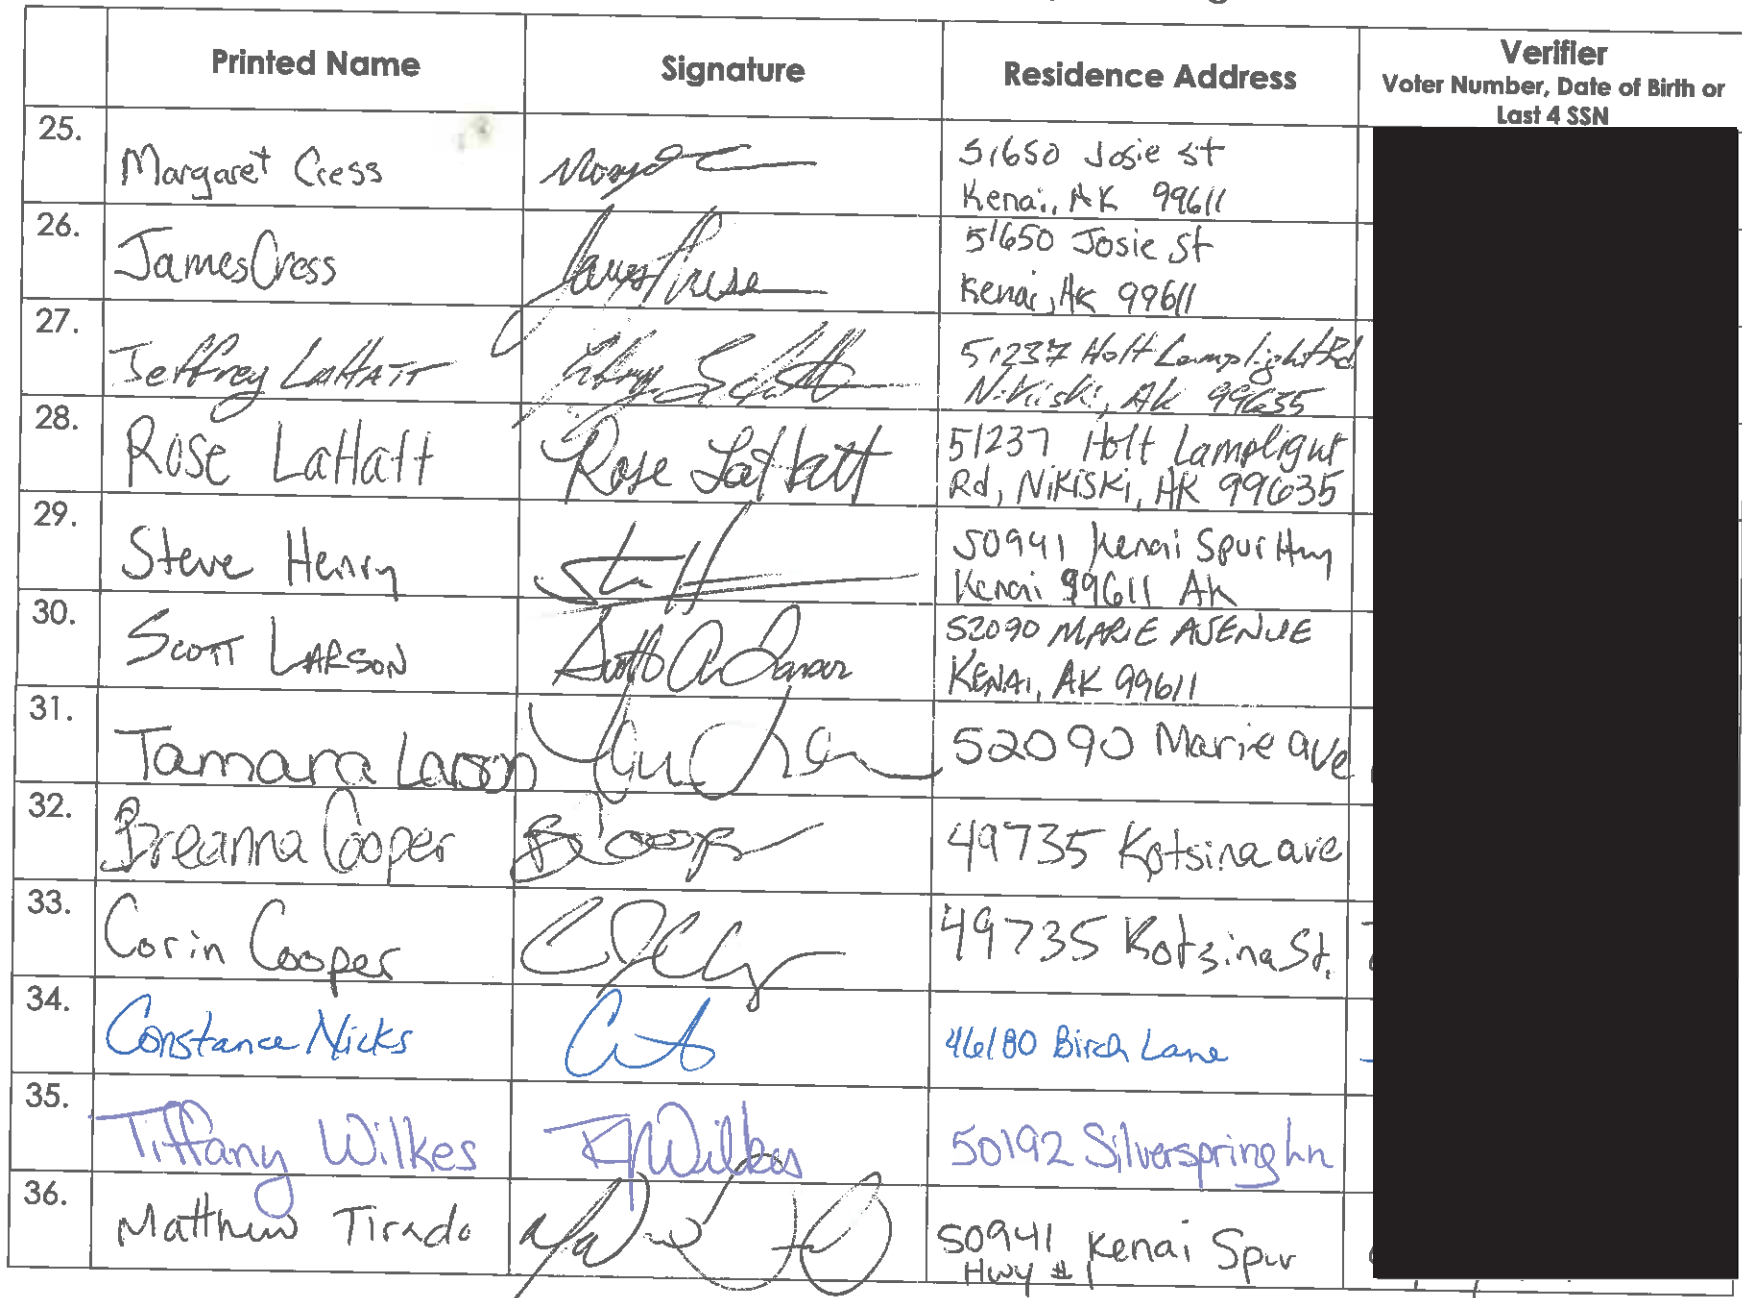 Printed Name Signature Residence Address Verifier
Voter Number, Date of Birth or
Last 4 SSN
25. Margaret Cress 51650 Josie St
Kenai, AK 99611
26. James Cress 51650 Josie St
Kenai, AK 99611
27. Jeffrey LaHaTT 51237 Holt Lamplight Rd
Nikiski, AK 99635
28. Rose LaHatt Rose LaHatt 51237 Holt Lamplight
Rd, Nikiski, AK 99635
29. Steve Henry 50941 Kenai Spur Hwy
Kenai 99611 AK
30. SCOTT LARSON Scott A Larson 52090 MARIE AVENUE
KENAI, AK 99611
31. Tamara Larson 52090 Marie ave
32. Breanna Cooper B Cooper 49735 Kotsina ave
33. Corin Cooper 49735 Kotsina St.
34. Constance Nicks 46180 Birch Lane
35. Tiffany Wilkes Wilkes 50192 Silverspring Ln
36. Matthew Tirado 50941 Kenai Spur
Hwy #1